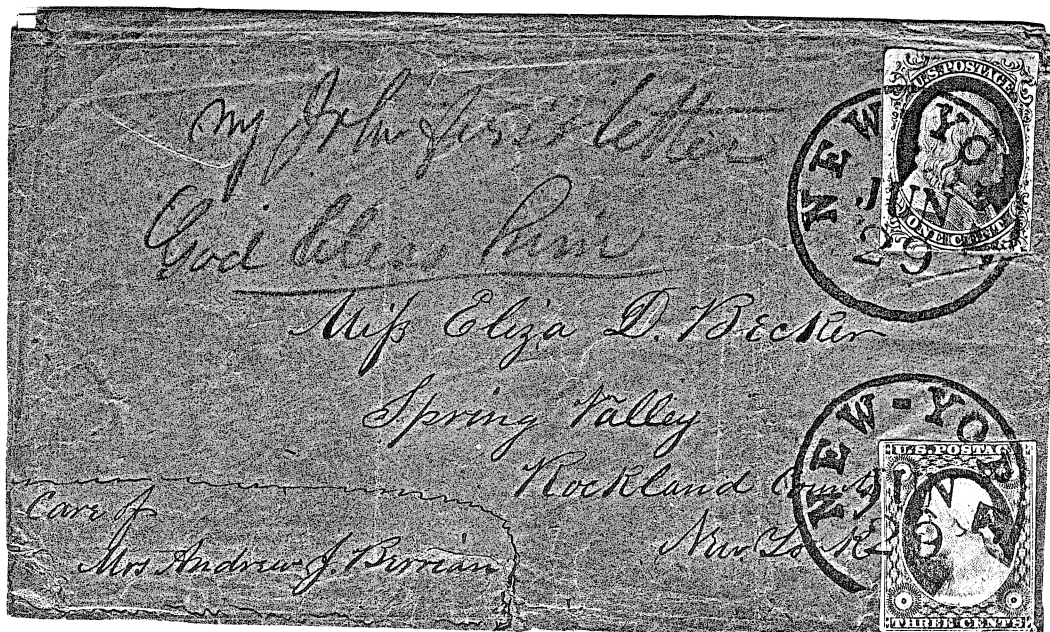 my John first letter
God bless him
Miss Eliza D. Becker
Spring Valley
Rockland County
New York
Care of
Mrs Andrew J.
U.S. POSTAGE
ONE CENT
NEW YO
JUN
29
NEW-YORK
JUN
29
U.S. POSTAG
THREE CENTS